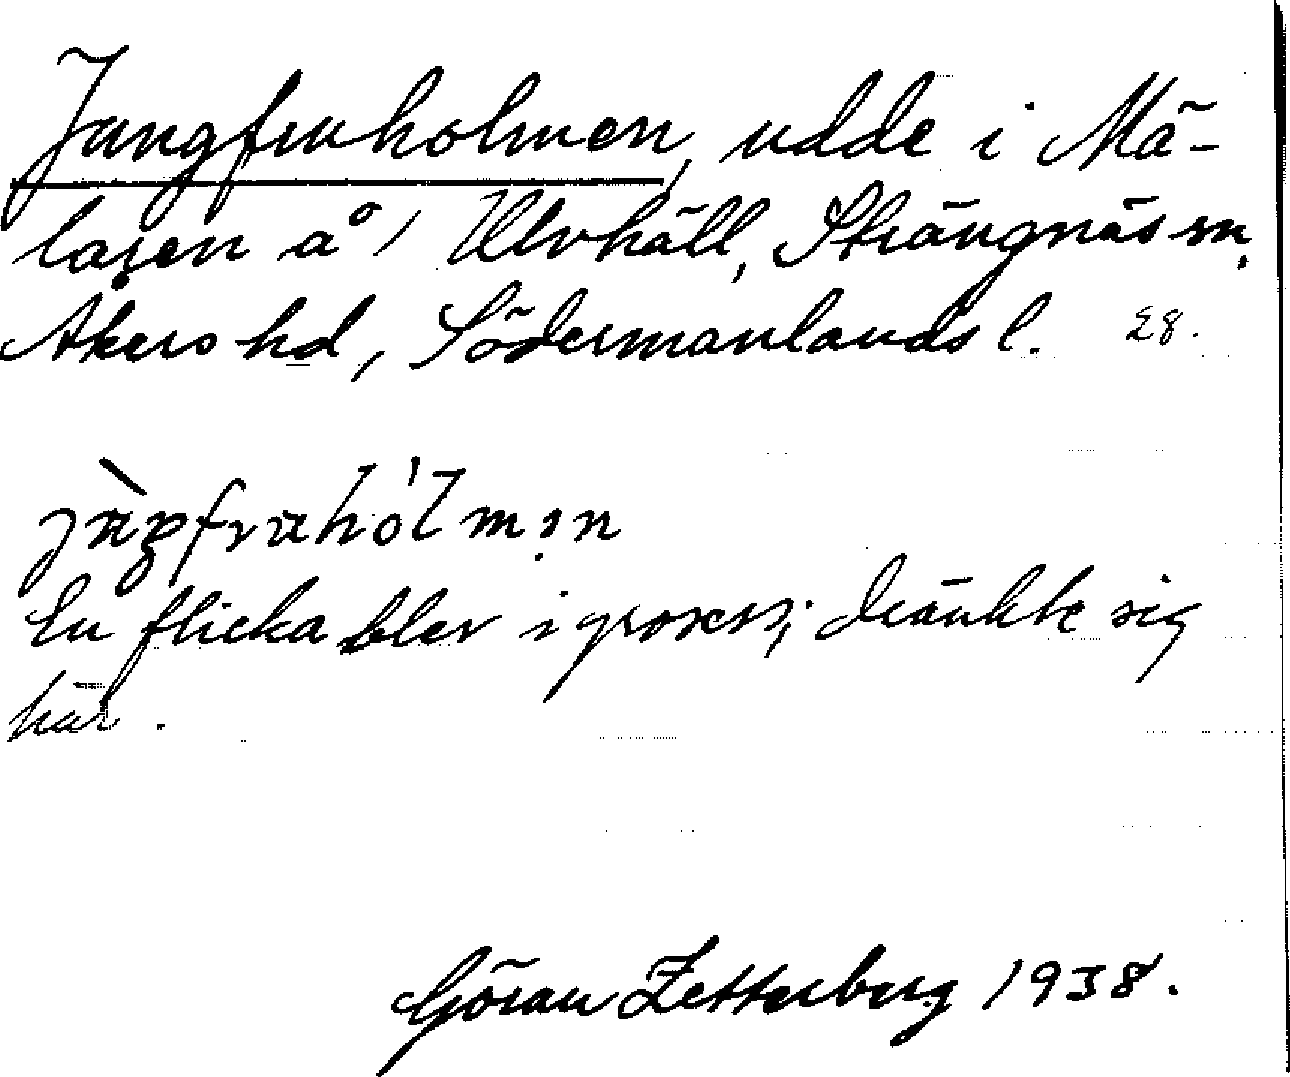 Jungfruholmen, udde i Mä-
laren å 1 Ulvhäll, Strängnäs sn,
Åkers hd, Södermanlands l. 28.
En flicka blev i grossess; dränkte sig
här.
Göran Zetterberg 1938.